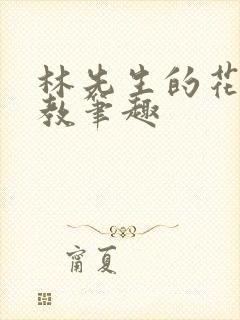 林先生的花
教笔趣
甯夏